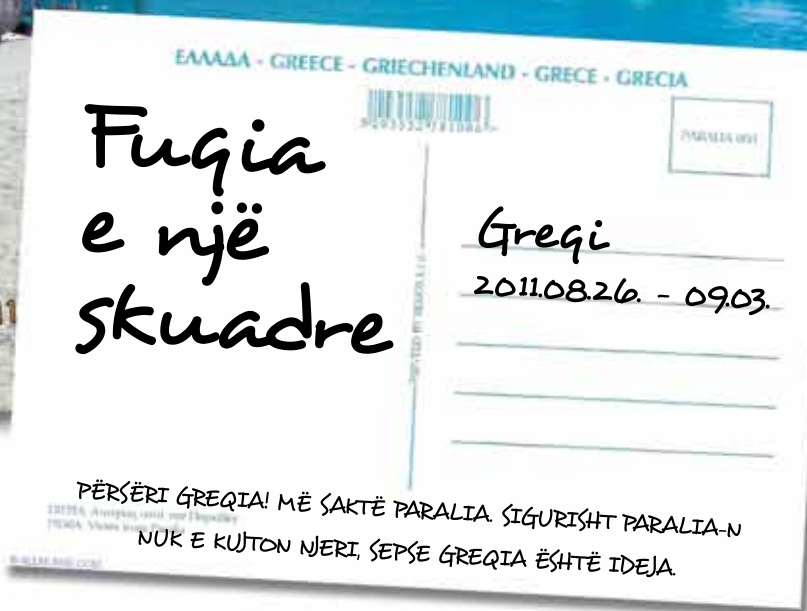 ΕΛΛΑΔΑ - GREECE - GRIECHENLAND - GRECE - GRECIA
PARALIA
Fuqia
e një
skuadre
Greqi
2011.08.26. - 09.03.
PËRSËRI GREQIA! MË SAKTË PARALIA. SIGURISHT PARALIA-N
NUK E KUJTON NJERI, SEPSE GREQIA ËSHTË IDEJA.